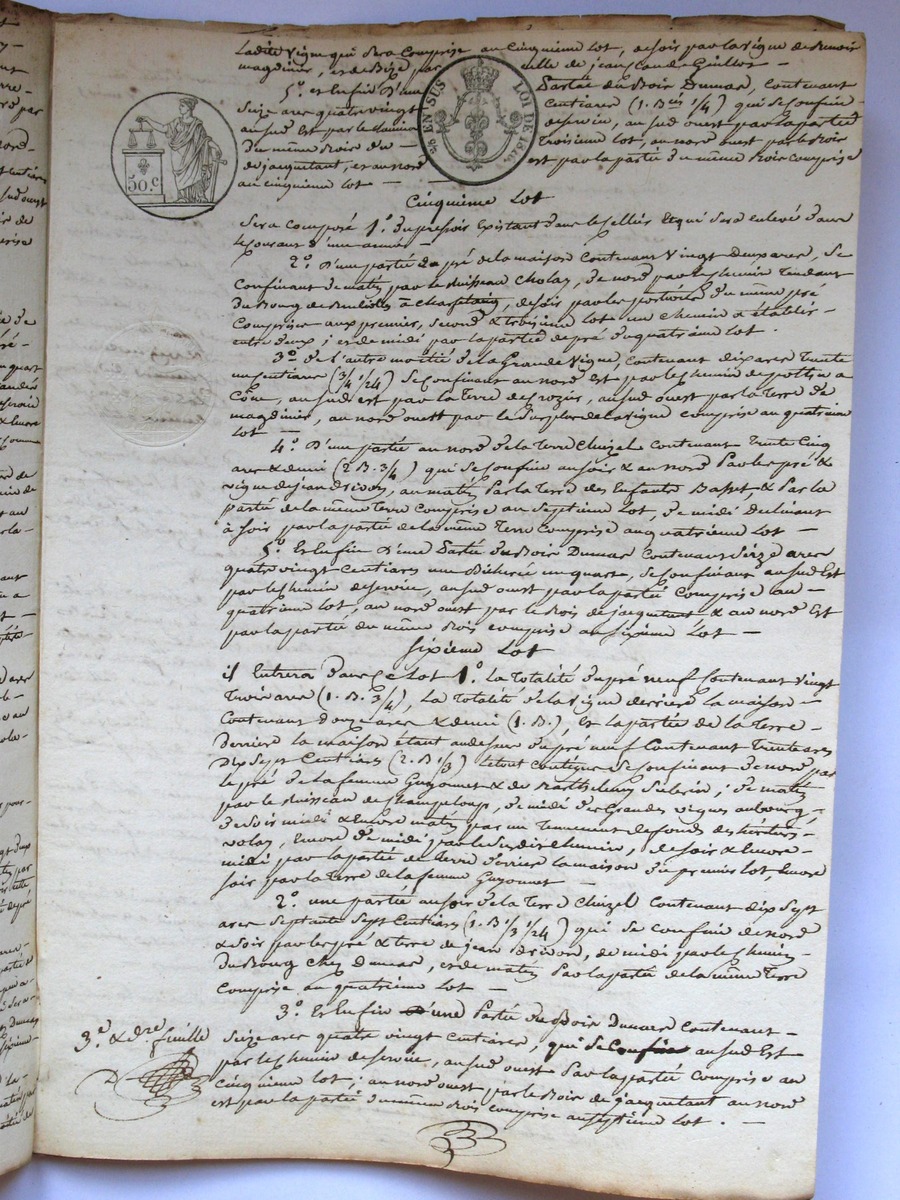 Ladite vigne qui sera comprise au cinquième Lot, de soir par la vigne de Benoit
magdinier, et de Bize par celle de jean claude Guillot
5.° et Enfin D'une Partie du Bois Dumas, contenant
Seize ares quatre vingt Centiares (1. Bée 1/4) qui se confine
au sud Est par le chemin deservice, au sud ouest par la partie
du même Bois du troisième lot, au nord ouest par le Bois
de jacquetant, et au nord est par la partie du même Bois comprise
au cinquième lot —
EN SUS
LOI DE 1816
50.C
Cinquième Lot
Sera composé 1.° du pressoir Existant dans le Cellier Et qui Sera enlevé dans
le courant d'une année —
2.° D'une partie de pré de la maison Contenant Vingt deux ares, se
Confinant de matin par le Ruisseau Cholay, de nord par le chemin Tendant
du Bourg de à , de soir par les portions du même pré
Comprises aux premier, second & troisième lot un chemin à établir
entre deux ; et de midi par la partie de pré du quatrième lot.
3.° De l'autre moitié de la Grande Vigne, contenant dix ares Trente
un centiares (3/4 1/24) Se confinant au nord est par le chemin de pottin a
Cône, au sud est par la Terre de Crozier, au sud ouest par la Terre de
magdinier, au nord ouest par le surplus de la vigne comprise au quatrième
lot —
4.° D'une partie au nord de la Terre Chuizel Contenant Trente Cinq
ares & demi (2 B. 3/4) qui Se confine au soir & au nord Par les pré &
vigne de jean Brivon, au matin Par la Terre des Enfants Basset, & Par la
partie de la même Terre Comprise au Septième lot, de midi déclinant
à soir par la partie de la même Terre Comprise au quatrième lot —
5.° Et Enfin D'une Partie du Bois Dumas Contenant Seize ares
quatre vingt Centiares une Bicherée un quart, se confinant au sud Est
par le chemin deservice, au sud ouest par la partie Comprise au —
quatrième lot, au nord ouest par le Bois de jacquetant & au nord Est
par la partie du même Bois comprise au Sixième Lot —
Sixième Lot
il Entrera dans ce Lot 1.° La Totalité du pré neuf Contenant Vingt
Trois ares (1. B. 3/4), La Totalité de la vigne derrière la maison —
Contenant douze ares & demi (1. B.), Et la partie de la Terre —
Derrière la maison étant au dessus du pré neuf Contenant Trente ares
Dix Sept Centiares (2. B 1/3) le tout contigu Se confinant de nord par
le pré de la femme Guyonnet & de Barthelemy Subrin ; de matin
par le Ruisseau de Champeloup, de midi des Grandes vignes au bourg,
de soir midi & Encore matin par un Tennement de fonds des héritiers
volay, Encore de midi par le Susdit chemin, de soir & Encore
midi par la partie de Terre derrière la maison du premier lot, Encore
soir par la Terre de la femme Guyonnet —
2.° une partie au soir de la Terre Chuizel Contenant dix Sept
ares Septante Sept Centiares (1. B 1/3 1/24) qui se confine de nord
& soir par les pré & terre de jean Brivon, de midi par le chemin
du Bourg chez Dumas, et de matin Par la partie de la même Terre
Comprise au quatrième lot —
3.° Et Enfin d'une Partie du Bois Dumas Contenant —
Seize ares quatre vingt centiares, qui se Confine au sud Est
par le chemin deservice, au sud ouest Par la partie Comprise au
cinquième lot ; au nord ouest par le Bois de jacquetant au nord
est par la partie du même Bois comprise au Septième lot. —
3.e & d.re feuille